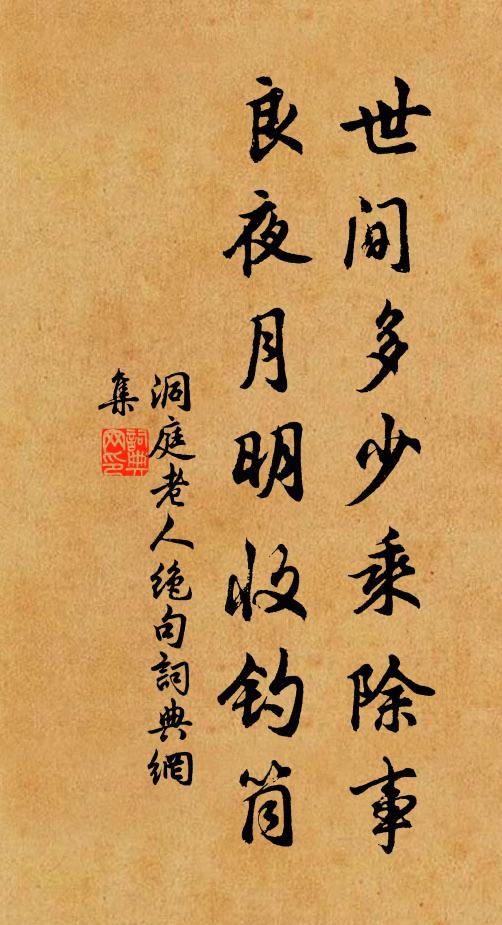 世间多少乘除事
良夜月明收钓筒
洞庭老人绝句詞典網
集
詞典
网印